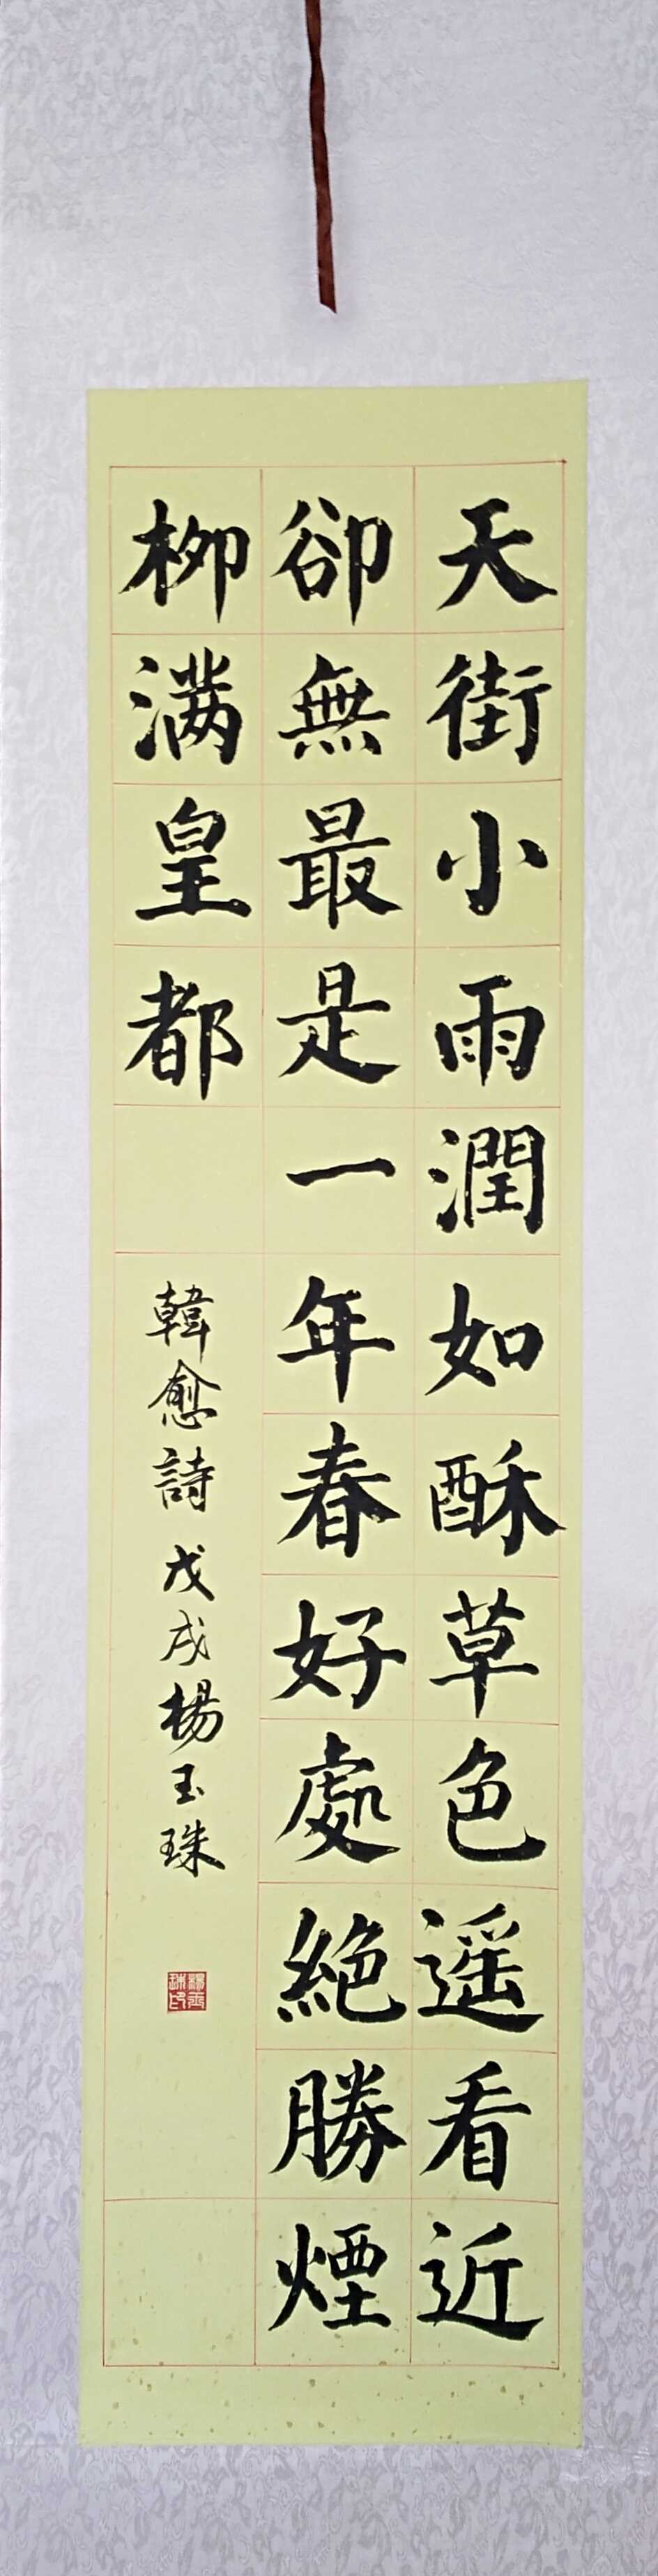 天街小雨潤如酥草色遥看近
卻無最是一年春好處絶勝煙
柳满皇都
韓愈詩 戊戌楊玉珠